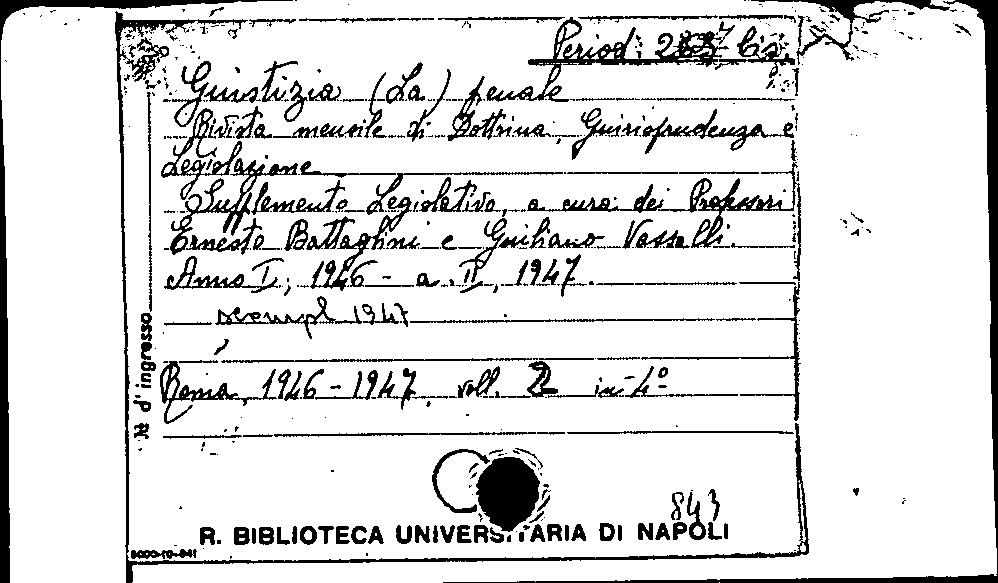 Period. bis.
Giustizia (La) penale
Rivista mensile di Dottrina, Guirisprudenza e
Legislazione
Supplemento Legislativo, a cura dei Professori
Ernesto Battaglini e Guiliano Vassalli.
Anno I, 1946 - a. II, 1947.
1947
Roma, 1946-1947, voll. 2 in-4º
d'ingresso
843
R. BIBLIOTECA UNIVERSITARIA DI NAPOLI